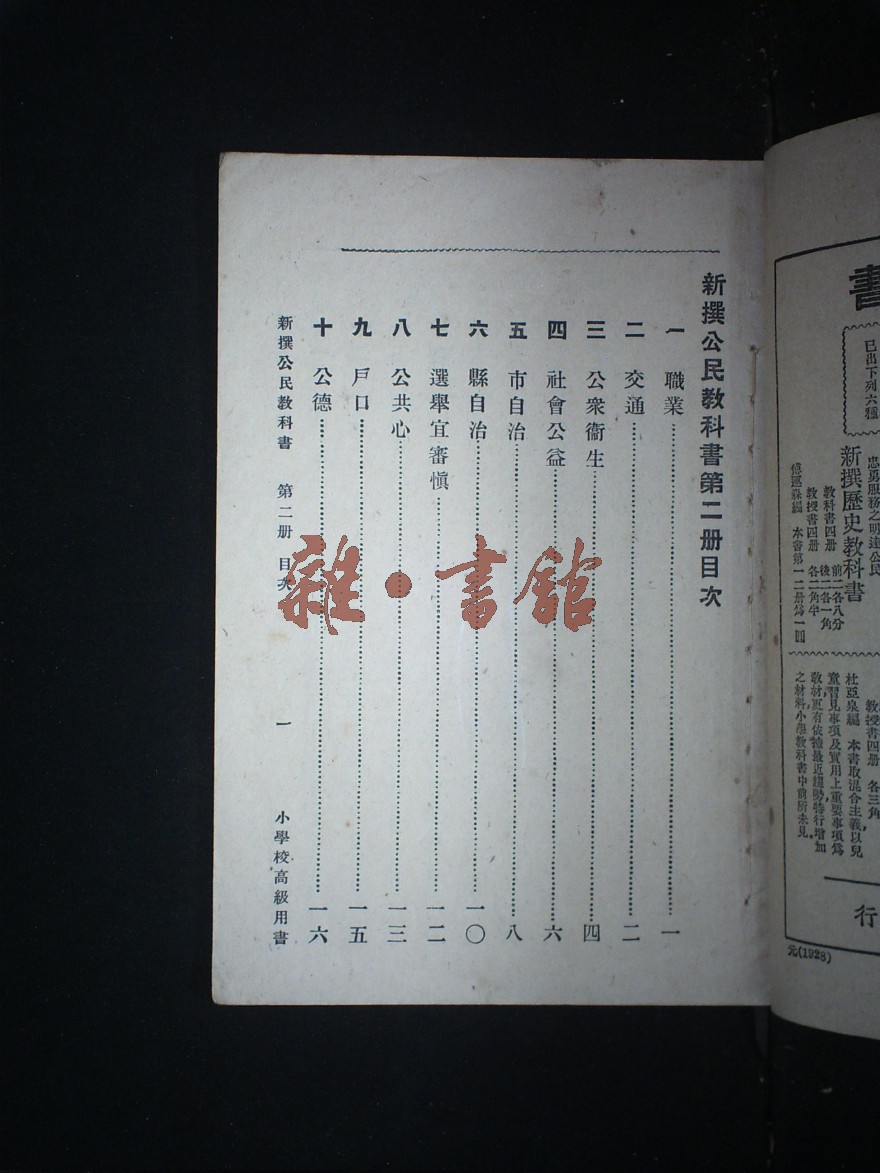 新撰公民教科書第二册目次
一 職業 一
二 交通 二
三 公衆衞生 四
四 社會公益 六
五 市自治 八
六 縣自治 一〇
七 選舉宜審慎 一二
八 公共心 一三
九 戶口 一五
十 公德 一六
新撰公民教科書 第二册 目次 一 小學校高級用書
雜·書館
書
已出下列六種
忠勇服務之明達公民
新撰歷史教科書
教科書四册 前二各八分 後二各一角
教授書四册 各二角半
傅運森編 本書第一二册爲一圓
教授書四册 各三角
杜亞泉編 本書取混合主義以兒
童習見事項及實用上重要事項爲
教材更有依據最近趨勢特行增加
之材料小學教科書中前所未見
行
元(1928)